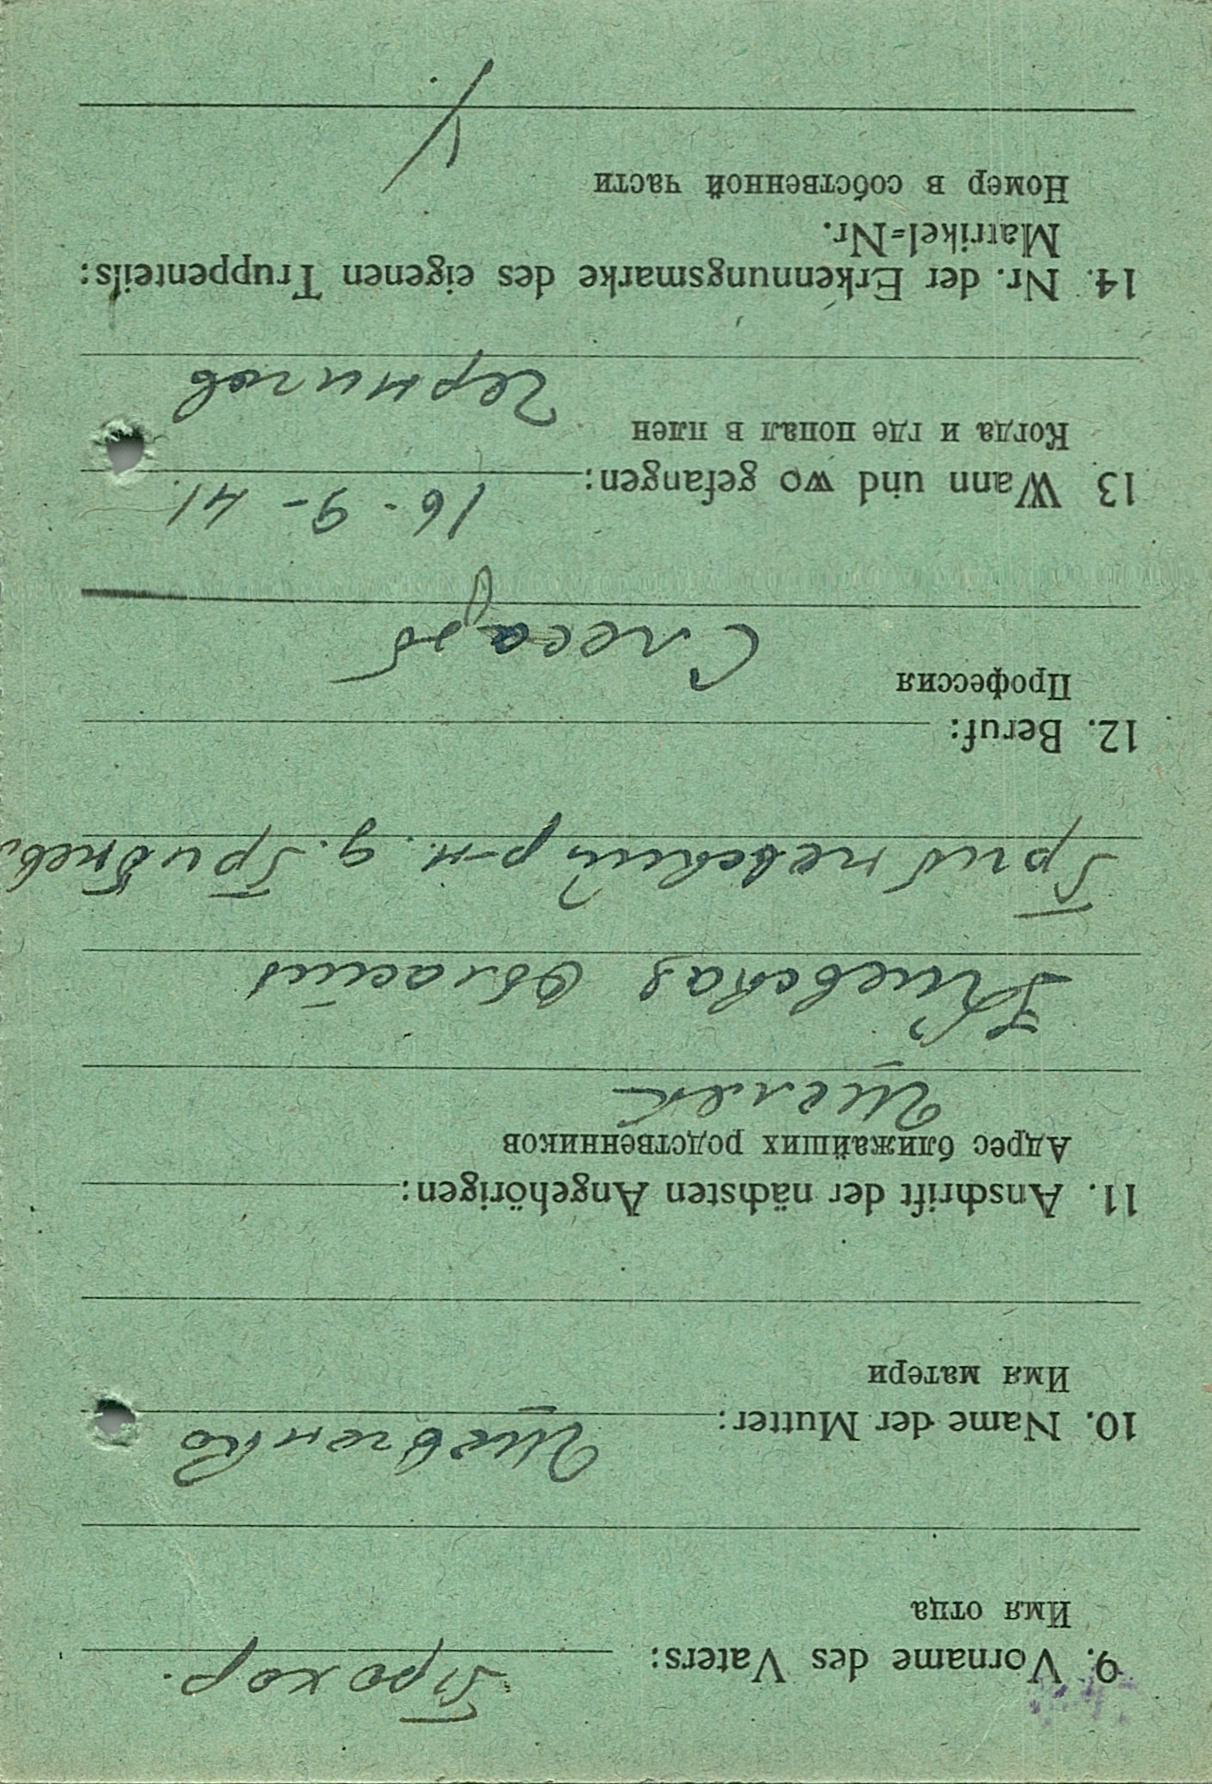 9. Vorname des Vaters: Прохор.
Имя отца
10. Name der Mutter: Шевченко
Имя матери
11. Anschrift der nächsten Angehörigen:
Адрес ближайших родственников
Киевская область
р-н. д.
12. Beruf:
Профессия
Слесарь
13. Wann und wo gefangen: 16-9-41.
Когда и где попал в плен
Чернигов
14. Nr. der Erkennungsmarke des eigenen Truppenteils:
Matrikel=Nr.
Номер в собственной части